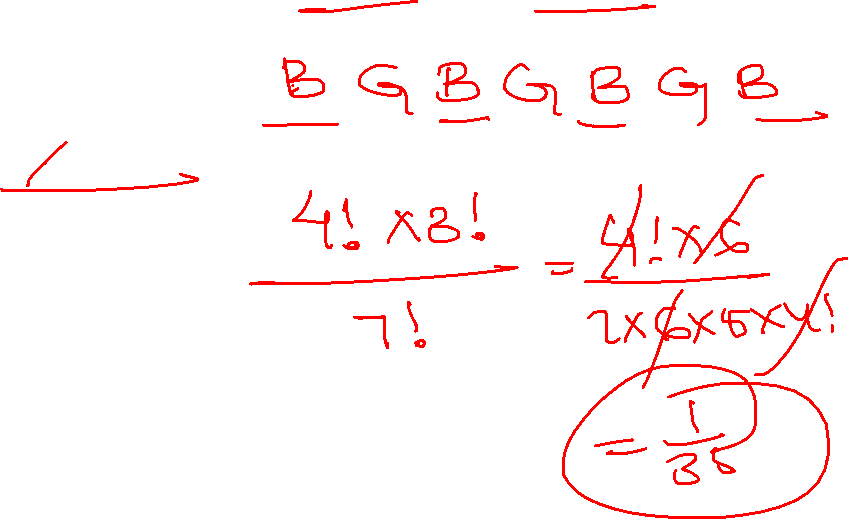 B G B G B G B
4! × 3! / 7! = 4! × 6 / 7 × 6 × 5 × 4!
= 1/35